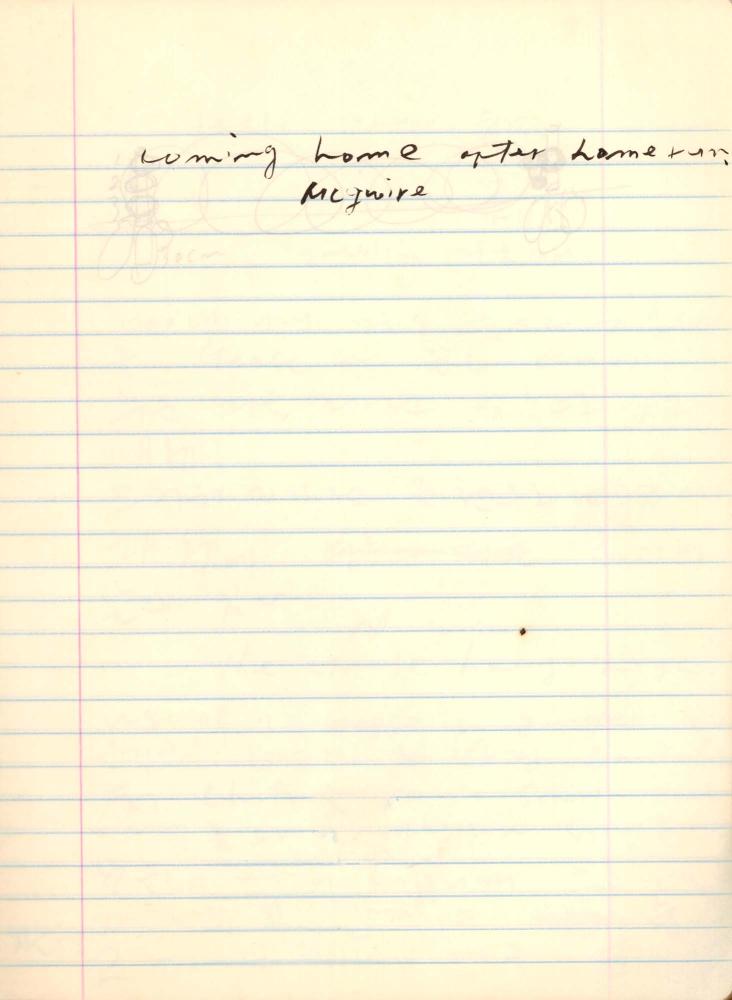 coming home after home run
McGwire